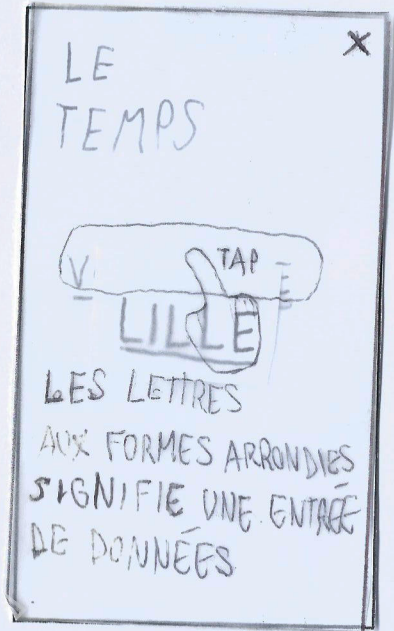 X
LE
TEMPS
TAP
V E
LILLE
LES LETTRES
AUX FORMES ARRONDIES
SIGNIFIE UNE ENTRÉE
DE DONNÉES